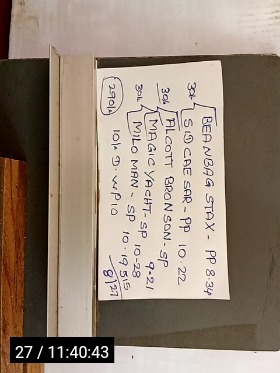 30k BEANBAG STAX - PP 8.34
SID CAESAR - PP 10.22
30k ALCOTT BRONSON - SP 9.21
30k MAGIC YACHT - SP 10-28
MILO MAN - SP 10.19.5/5
290k 10k D. WP10 8/27
27 / 11:40:43